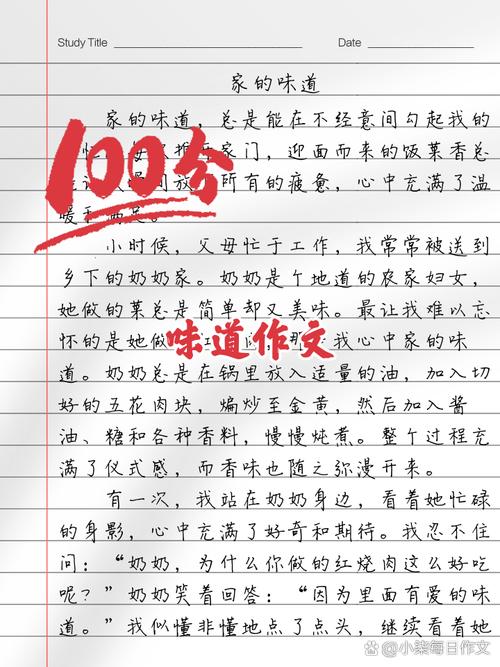 Study Title
Date
家的味道
家的味道，总是能在不经意间勾起我的
100分
家门，迎面而来的饭菜香总
放 所有的疲惫，心中充满了温
暖和满足。
小时候，父母忙于工作，我常常被送到
乡下的奶奶家。奶奶是个地道的农家妇女，
她做的菜总是简单却又美味。最让我难以忘
怀的是她做 我心中家的味
味道作文
道。奶奶总是在锅里放入适量的油，加入切
好的五花肉块，煸炒至金黄，然后加入酱
油、糖和各种香料，慢慢炖煮。整个过程充
满了仪式感，而香味也随之弥漫开来。
有一次，我站在奶奶身边，看着她忙碌
的身影，心中充满了好奇和期待。我忍不住
问：“奶奶，为什么你做的红烧肉这么好吃
呢？”奶奶笑着回答：“因为里面有爱的味
道。”我似懂非懂地点了点头，继续看着她
@小柒每日作文